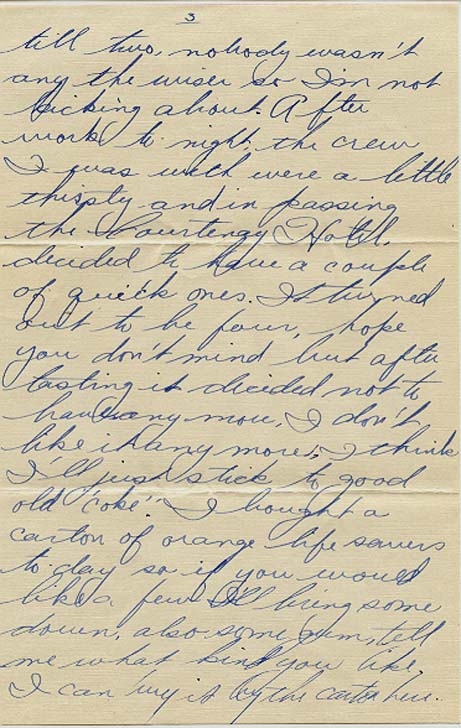 3
till two, nobody wasn't
any the wiser so I'm not
kicking about. After
work to night, the crew
I was with were a little
thirsty and in passing
the Courtenay Hotel,
decided to have a couple
of quick ones. It turned
out to be four, hope
you don't mind but after
tasting it decided not to
have any more, I don't
like it any more, I think
I'll just stick to good
old "coke". I bought a
carton of orange life savers
to-day so if you would
like a few I'll bring some
down, also some gum, tell
me what kind you like,
I can buy it by the carton here.